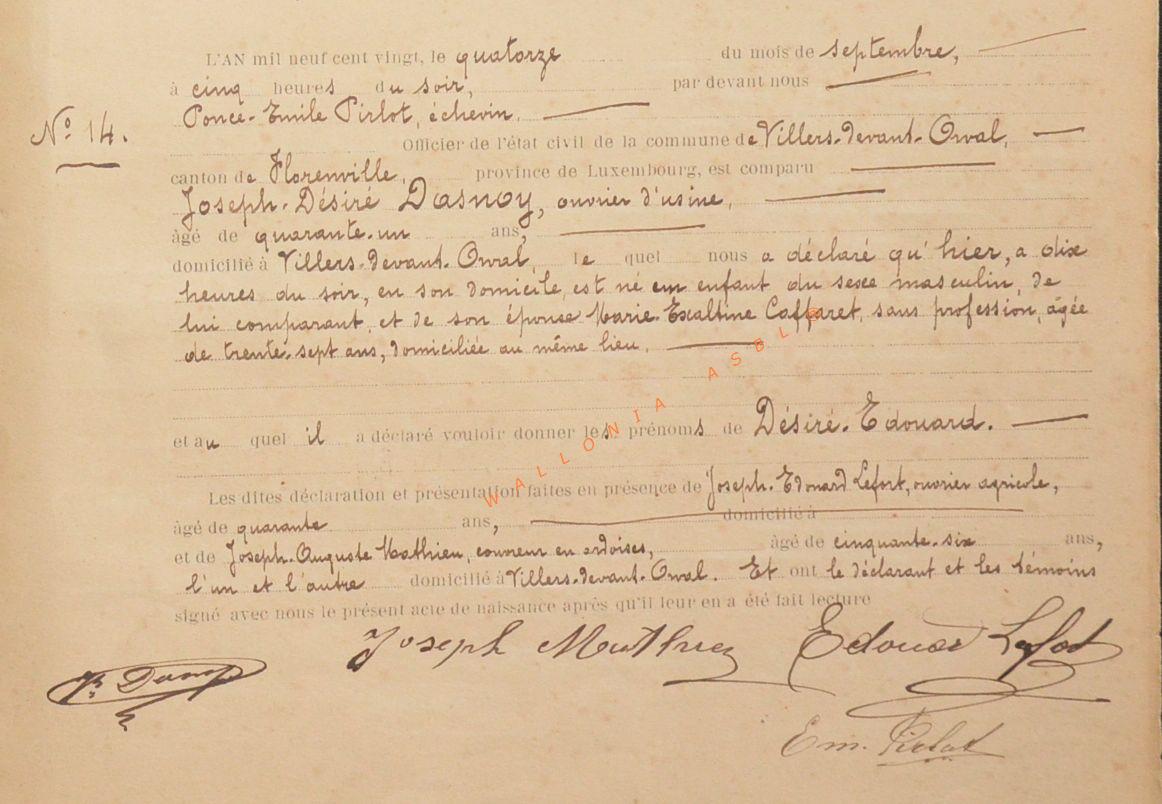 L'AN mil neuf cent vingt, le quatorze du mois de septembre,
à cinq heures du soir, par devant nous
Ponce-Emile Pirlot, échevin.
N° 14.
Officier de l'état civil de la commune de Villers-devant-Orval,
canton de Florenville, province de Luxembourg, est comparu
Joseph-Désiré Dasnoy, ouvrier d'usine,
âgé de quarante-un ans,
domicilié à Villers-devant-Orval, le quel nous a déclaré qu'hier, a dix
heures du soir, en son domicile, est né un enfant du sexe masculin, de
lui comparant, et de son épouse Marie-Exaltine Caffaret, sans profession, âgée
de trente-sept ans, domiciliée au même lieu.
et au quel il a déclaré vouloir donner les prénoms de Désiré-Edouard.
WALLONIA ASBL ©
Les dites déclaration et présentation faites en présence de Joseph-Edouard Lefort, ouvrier agricole,
âgé de quarante ans, domicilié à
et de Joseph-Auguste Mathieu, couvreur en ardoises, âgé de cinquante-six ans,
l'un et l'autre domicilié à Villers-devant-Orval. Et ont le déclarant et les témoins
signé avec nous le présent acte de naissance après qu'il leur en a été fait lecture
Joseph Mathieu Edouard Lefort
Em. Pirlot